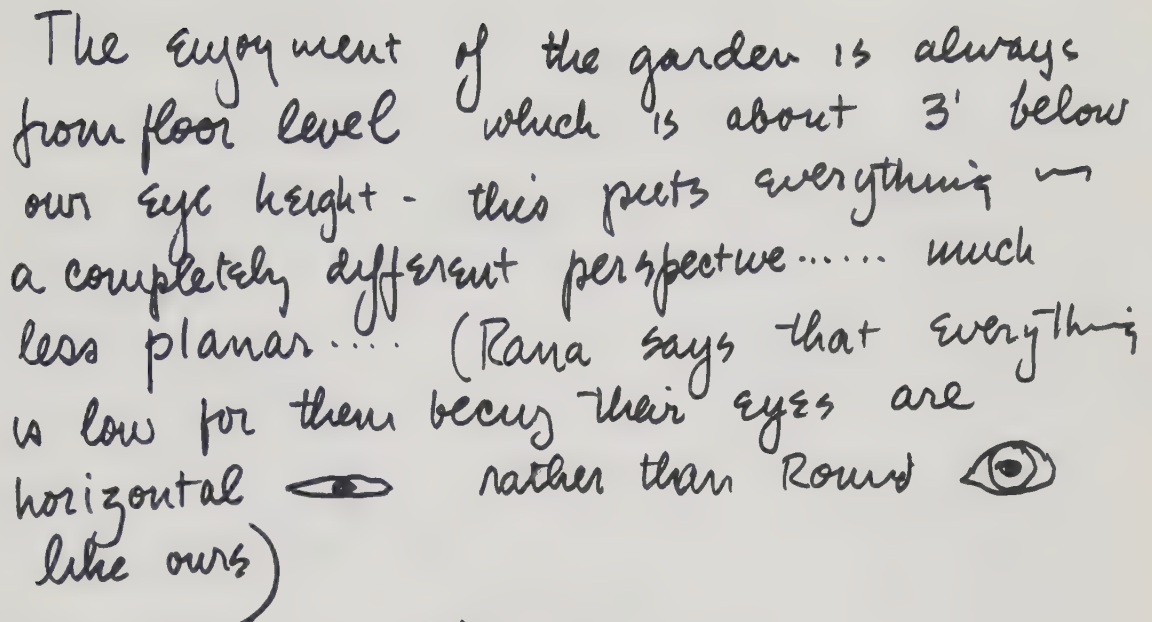 The enjoyment of the garden is always
from floor level which is about 3' below
our eye height - this puts everything in
a completely different perspective...... much
less planar..... (Rana says that everything
is low for them becus their eyes are
horizontal rather than Round
like ours)